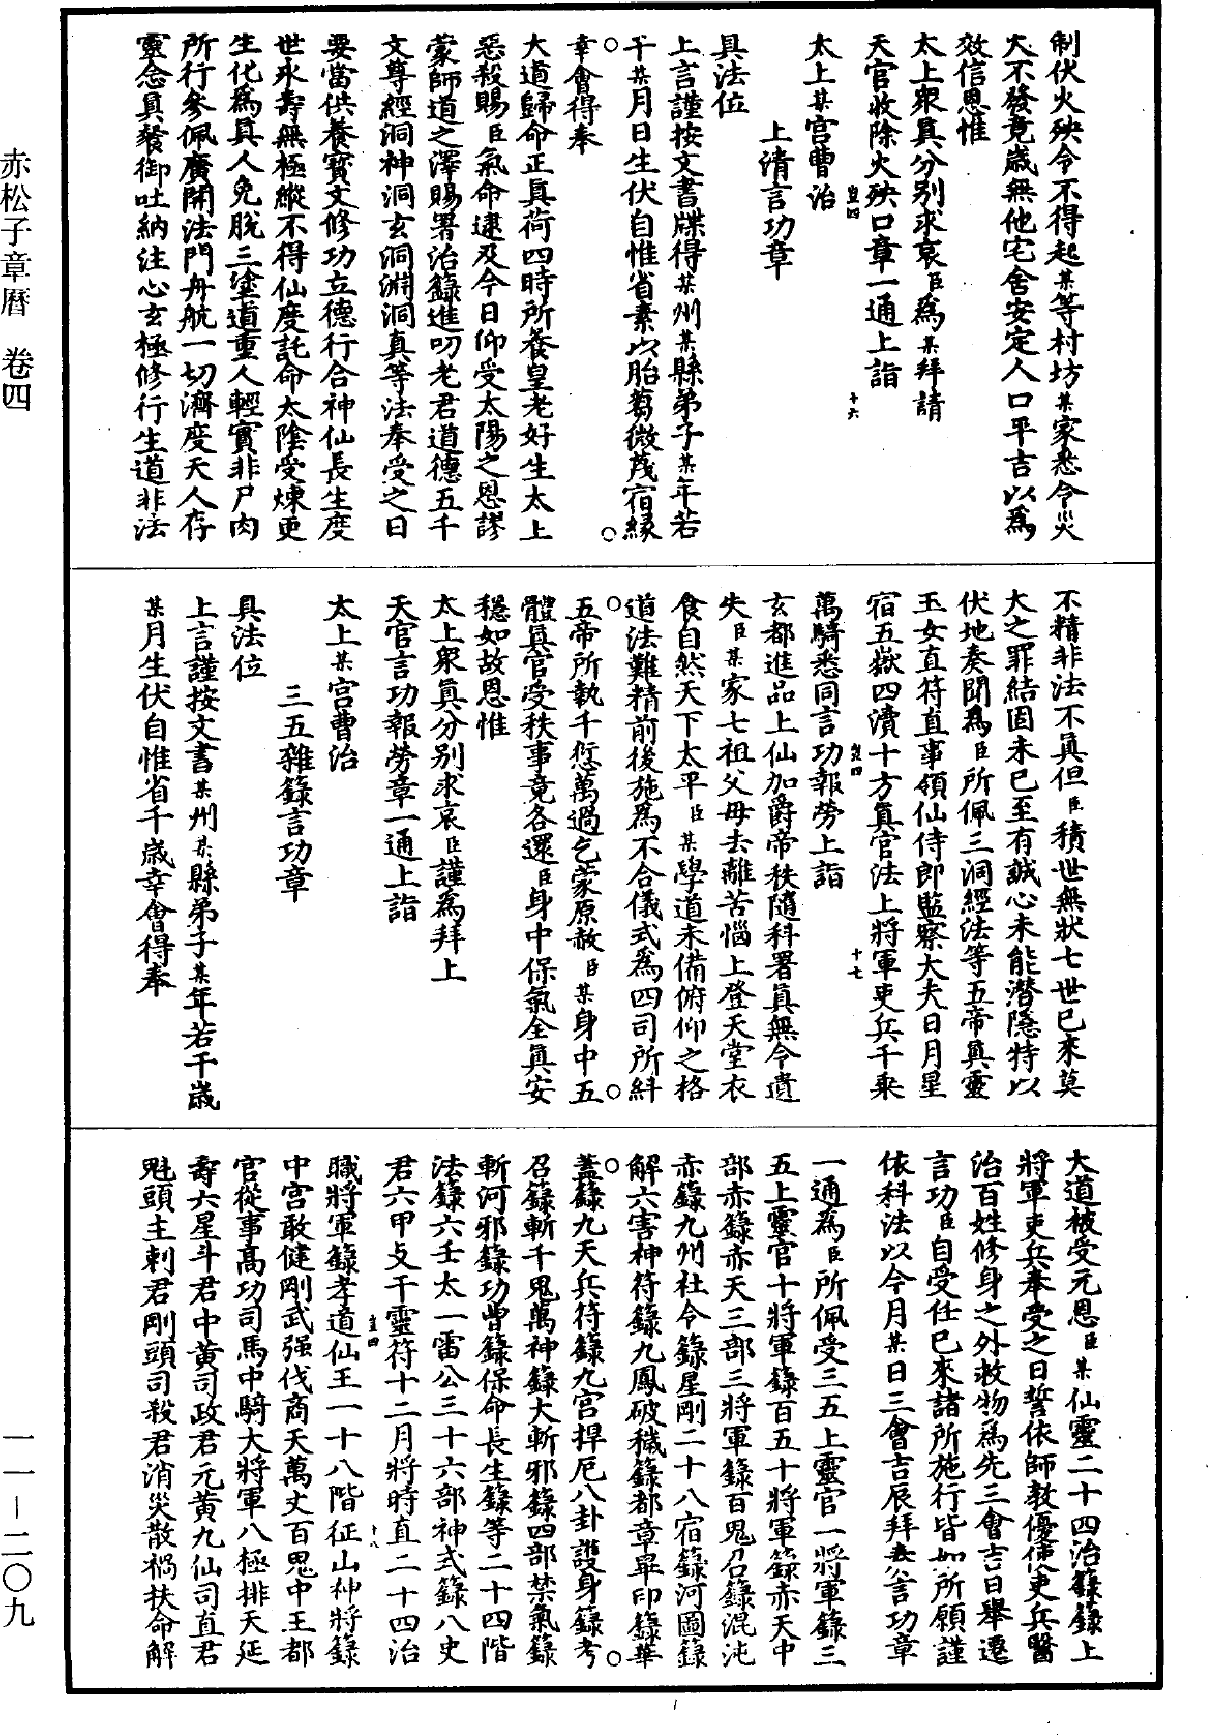 制伏火殃令不得起某等村坊某家悉令災
火不發竟歲無他宅舍安定人口平吉以為
效信恩惟
太上眾真分别求哀臣為某拜請
天官收除火殃口章一通上詣
太上某宮曹治
上清言功章
具法位
上言謹按文書牒得某州某縣弟子某年若
干某月日生伏自惟省素以胎萵微蔑宿緣
幸會得奉
大道歸命正真荷四時所養皇老好生太上
惡殺賜臣氣命逮及今日仰受太陽之恩謬
蒙師道之澤賜署治籙進叨老君道德五千
文尊經洞神洞玄洞淵洞真等法奉受之日
要當供養寶文修功立德行合神仙長生度
世永壽無極縱不得仙度託命太陰受煉更
生化為真人免脫三塗道重人輕實非尸肉
所行參佩廣開法門舟航一切濟度天人存
靈念真餐御吐納注心玄極修行生道非法
不精非法不真但臣積世無狀七世已來莫
大之罪結固未已至有誠心未能潛隱特以
伏地奏聞為臣所佩三洞經法等五帝真靈
玉女直符直事領仙侍郎監察大夫日月星
宿五嶽四瀆十方真官法上將軍吏兵千乘
萬騎悉同言功報勞上詣
玄都進品上仙加爵帝秩隨科署真無令遺
失臣某家七祖父母去離苦惱上登天堂衣
食自然天下太平臣某學道未備俯仰之格
道法難精前後施為不合儀式為四司所糾
五帝所執千愆萬過乞蒙原赦臣某身中五
體真官受秩事竟各還臣身中保氣全真安
穩如故恩惟
太上眾真分别求哀臣謹為拜上
天官言功報勞章一通上詣
太上某宮曹治
三五雜籙言功章
具法位
上言謹按文書某州某縣弟子某年若干歲
某月生伏自惟省千歲幸會得奉
大道被受元恩臣某仙靈二十四治籙籙上
將軍吏兵奉受之日誓依師教優使吏兵醫
治百姓修身之外救物為先三會吉日舉遷
言功臣自受任已來諸所施行皆如所願謹
依科法以今月某日三會吉辰拜表言功章
一通為臣所佩受三五上靈官一將軍籙三
五上靈官十將軍籙百五十將軍籙赤天中
部赤籙赤天三部三將軍籙百鬼召籙混沌
赤籙九州社令籙星剛二十八宿籙河圖籙
解六害神符籙九鳳破穢籙都章畢印籙華
蓋籙九天兵符籙九宮捍厄八卦護身籙考
召籙斬千鬼萬神籙大斬邪籙四部禁氣籙
斬河邪籙功曹籙保命長生籙等二十四階
法籙六壬太一雷公三十六部神式籙八史
君六甲支干靈符十二月將時直二十四治
職將軍籙孝道仙王一十八階征山神將籙
中宮敢健剛武强伐商天萬丈百鬼中王都
官從事高功司馬中騎大將軍八極排天延
壽六星斗君中黄司政君元黄九仙司直君
魁頭主刺君剛頭司殺君消災散禍扶命解
赤松子章曆　卷四
一一－二〇九